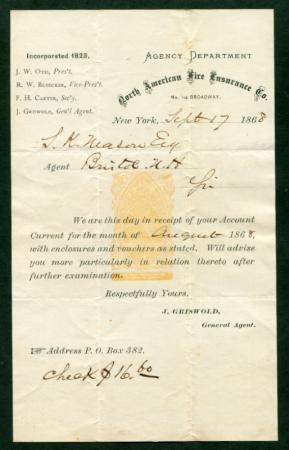 Incorporated 1823.
J. W. Otis, Pres't.
R. W. Bleecker, Vice-Pres't.
F. H. Carter, Sec'y.
J. Griswold, Gen'l Agent.
Agency Department
North American Fire Insurance Co.
No. 114 Broadway.
New York, Sept 17 1868
S. K. Mason Esq
Agent Bristol N.H
Sir
We are this day in receipt of your Account
Current for the month of August 1868,
with enclosures and vouchers as stated. Will advise
you more particularly in relation thereto after
further examination.
Respectfully Yours,
J. GRISWOLD,
General Agent.
Address P. O. Box 382.
Check $16.60